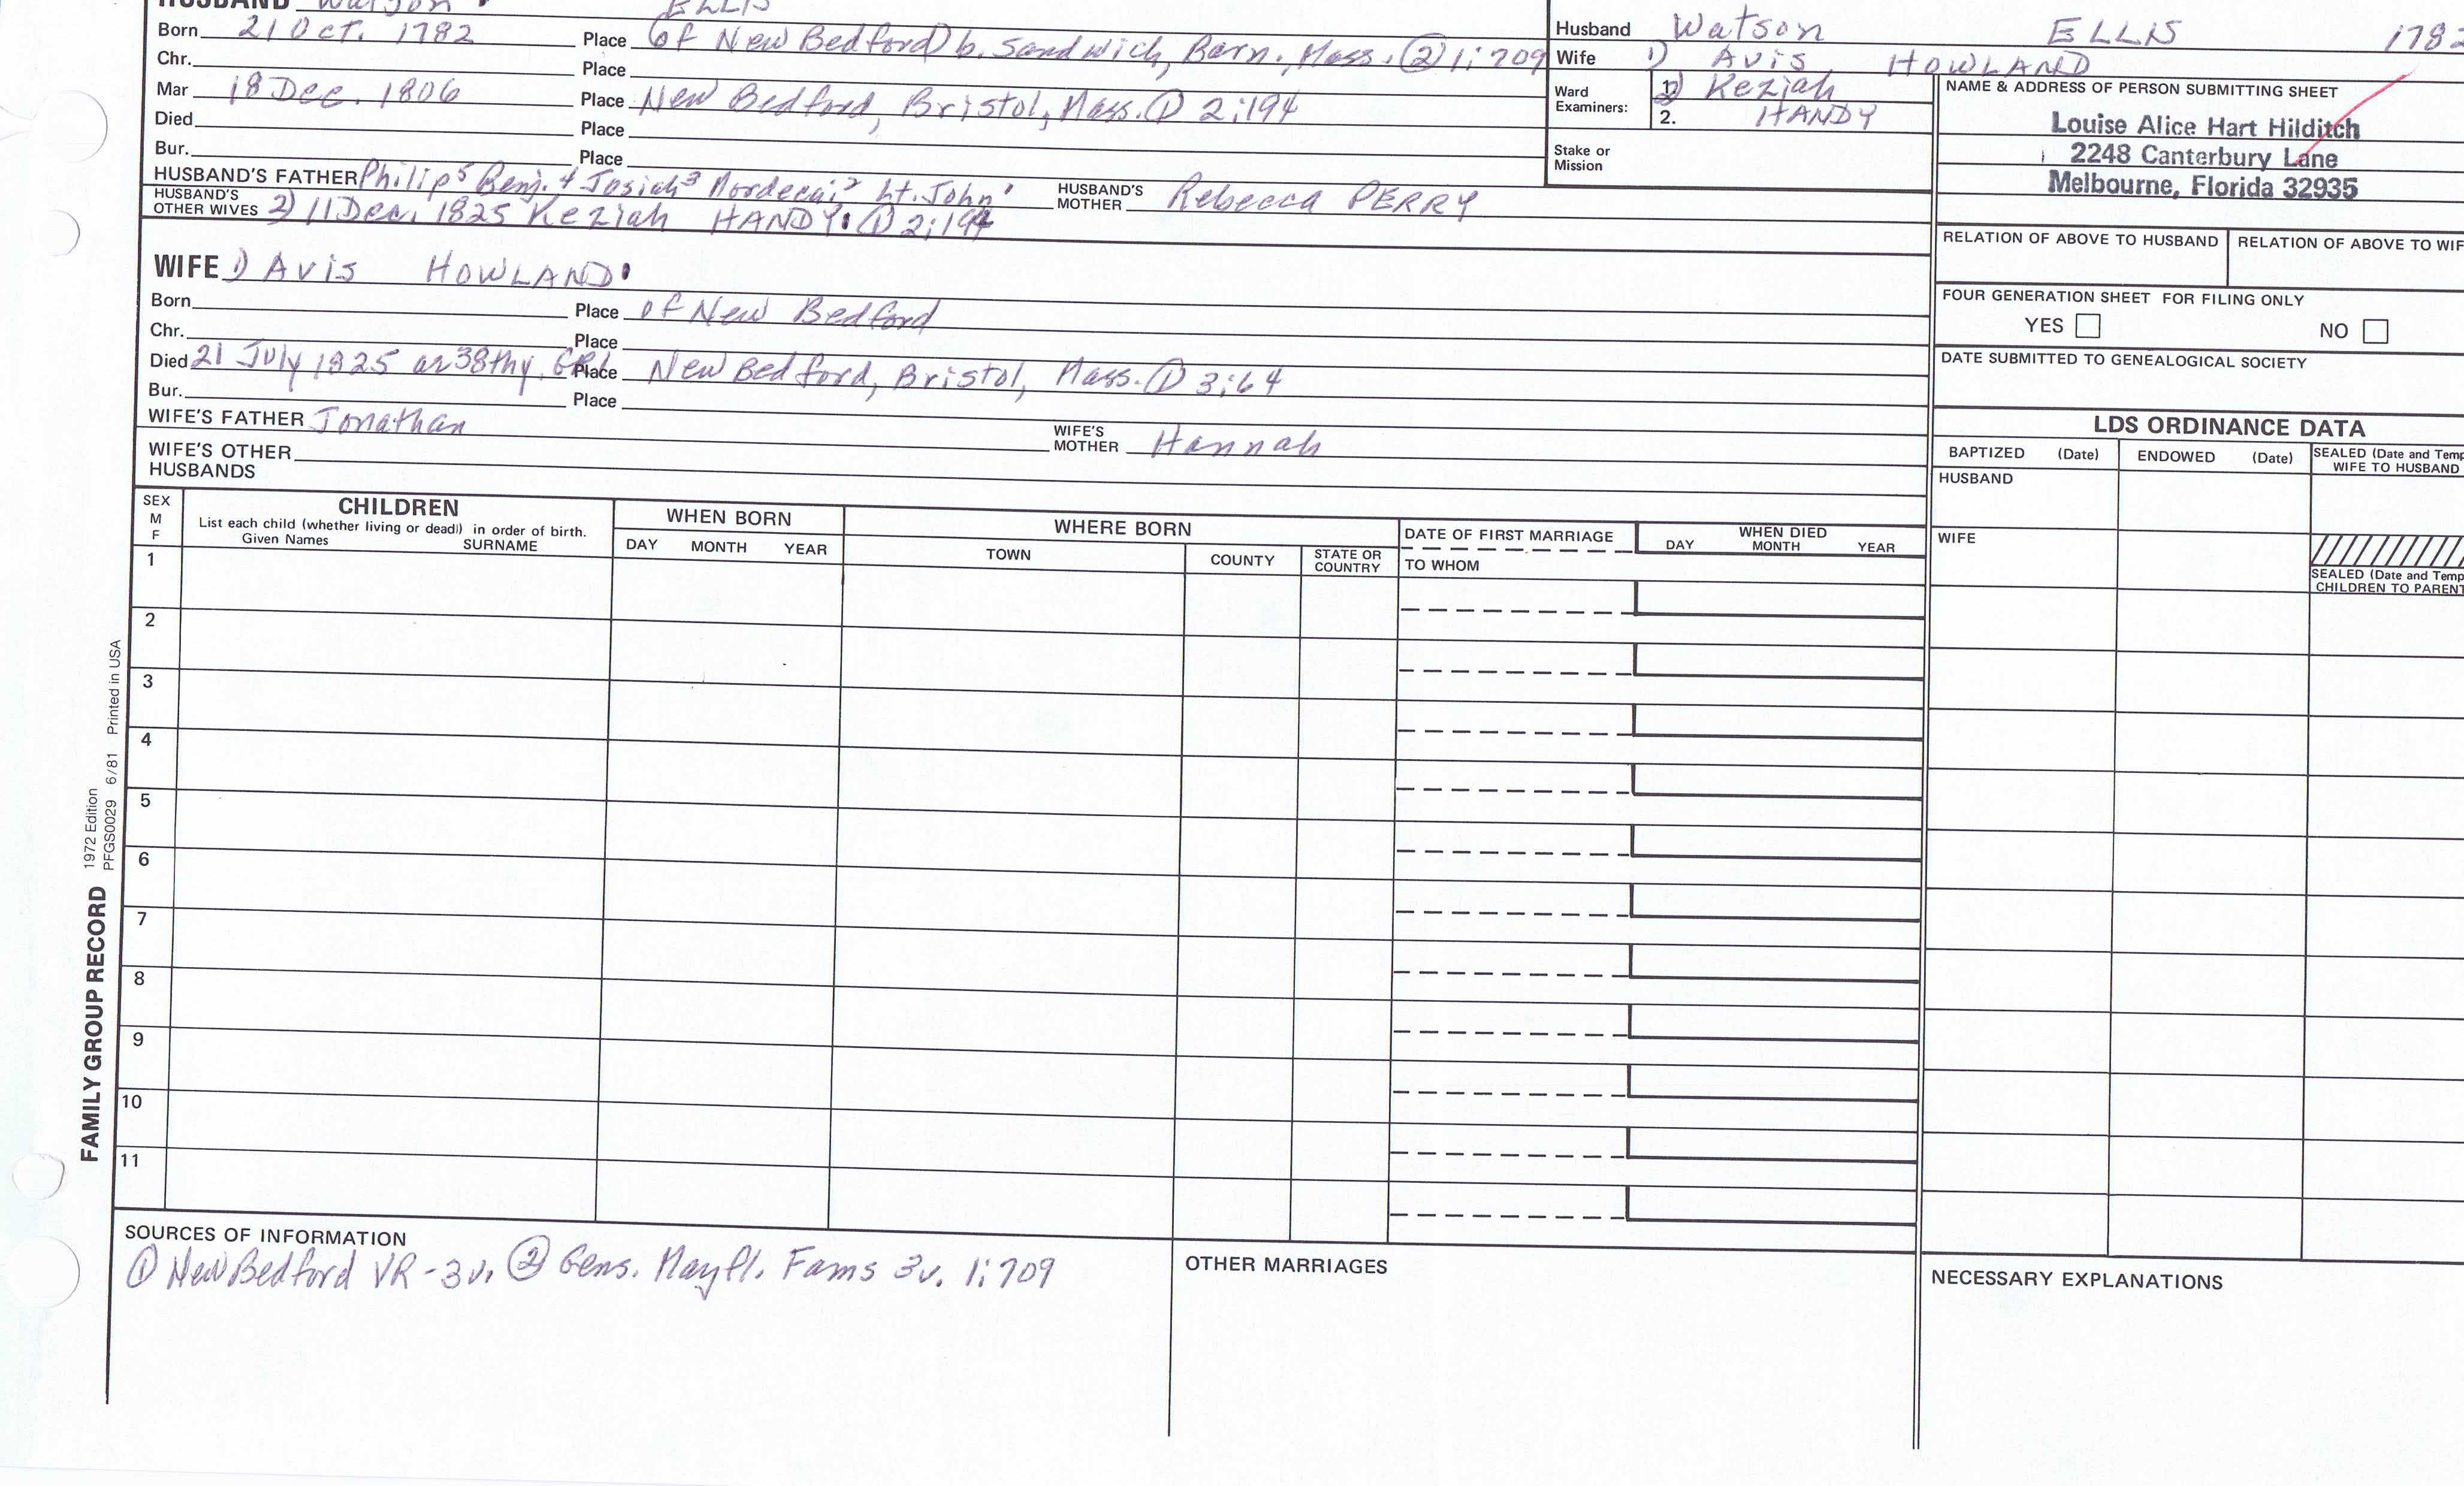 HUSBAND Watson ELLIS
Born 21 Oct. 1782 Place (of New Bedford) b. Sandwich, Barn., Mass. ② 1:709
Chr. Place
Mar 18 Dec. 1806 Place New Bedford, Bristol, Mass. ① 2:194
Died Place
Bur. Place
HUSBAND'S FATHER Philip⁵ Benj.⁴ Josiah³ Mordecai² Lt. John¹ HUSBAND'S MOTHER Rebecca PERRY
HUSBAND'S OTHER WIVES 2) 11 Dec. 1825 Keziah HANDY. ① 2:194
Husband Watson ELLIS 1782
Wife 1) Avis HOWLAND
Ward Examiners: 1. 2) Keziah
2. HANDY
Stake or Mission
NAME & ADDRESS OF PERSON SUBMITTING SHEET
Louise Alice Hart Hilditch
2248 Canterbury Lane
Melbourne, Florida 32935
RELATION OF ABOVE TO HUSBAND RELATION OF ABOVE TO WIF
FOUR GENERATION SHEET FOR FILING ONLY
YES NO
DATE SUBMITTED TO GENEALOGICAL SOCIETY
WIFE 1) AVIS HOWLAND
Born Place of New Bedford
Chr. Place
Died 21 July 1825 Place New Bedford, Bristol, Mass. ① 3:64
Bur. Place
WIFE'S FATHER Jonathan WIFE'S MOTHER Hannah
WIFE'S OTHER HUSBANDS
LDS ORDINANCE DATA
BAPTIZED (Date) ENDOWED (Date) SEALED (Date and Temp
WIFE TO HUSBAND
HUSBAND
WIFE
SEALED (Date and Temp
CHILDREN TO PARENT
SEX
M
F
CHILDREN
List each child (whether living or dead) in order of birth.
Given Names SURNAME
WHEN BORN
DAY MONTH YEAR
WHERE BORN
TOWN COUNTY STATE OR COUNTRY
DATE OF FIRST MARRIAGE
TO WHOM
WHEN DIED
DAY MONTH YEAR
1
2
3
4
5
6
7
8
9
10
11
FAMILY GROUP RECORD 1972 Edition
PFGS0029 6/81 Printed in USA
SOURCES OF INFORMATION
① New Bedford VR - 3v. ② Gens. Mayfl. Fams 3v. 1:709
OTHER MARRIAGES
NECESSARY EXPLANATIONS